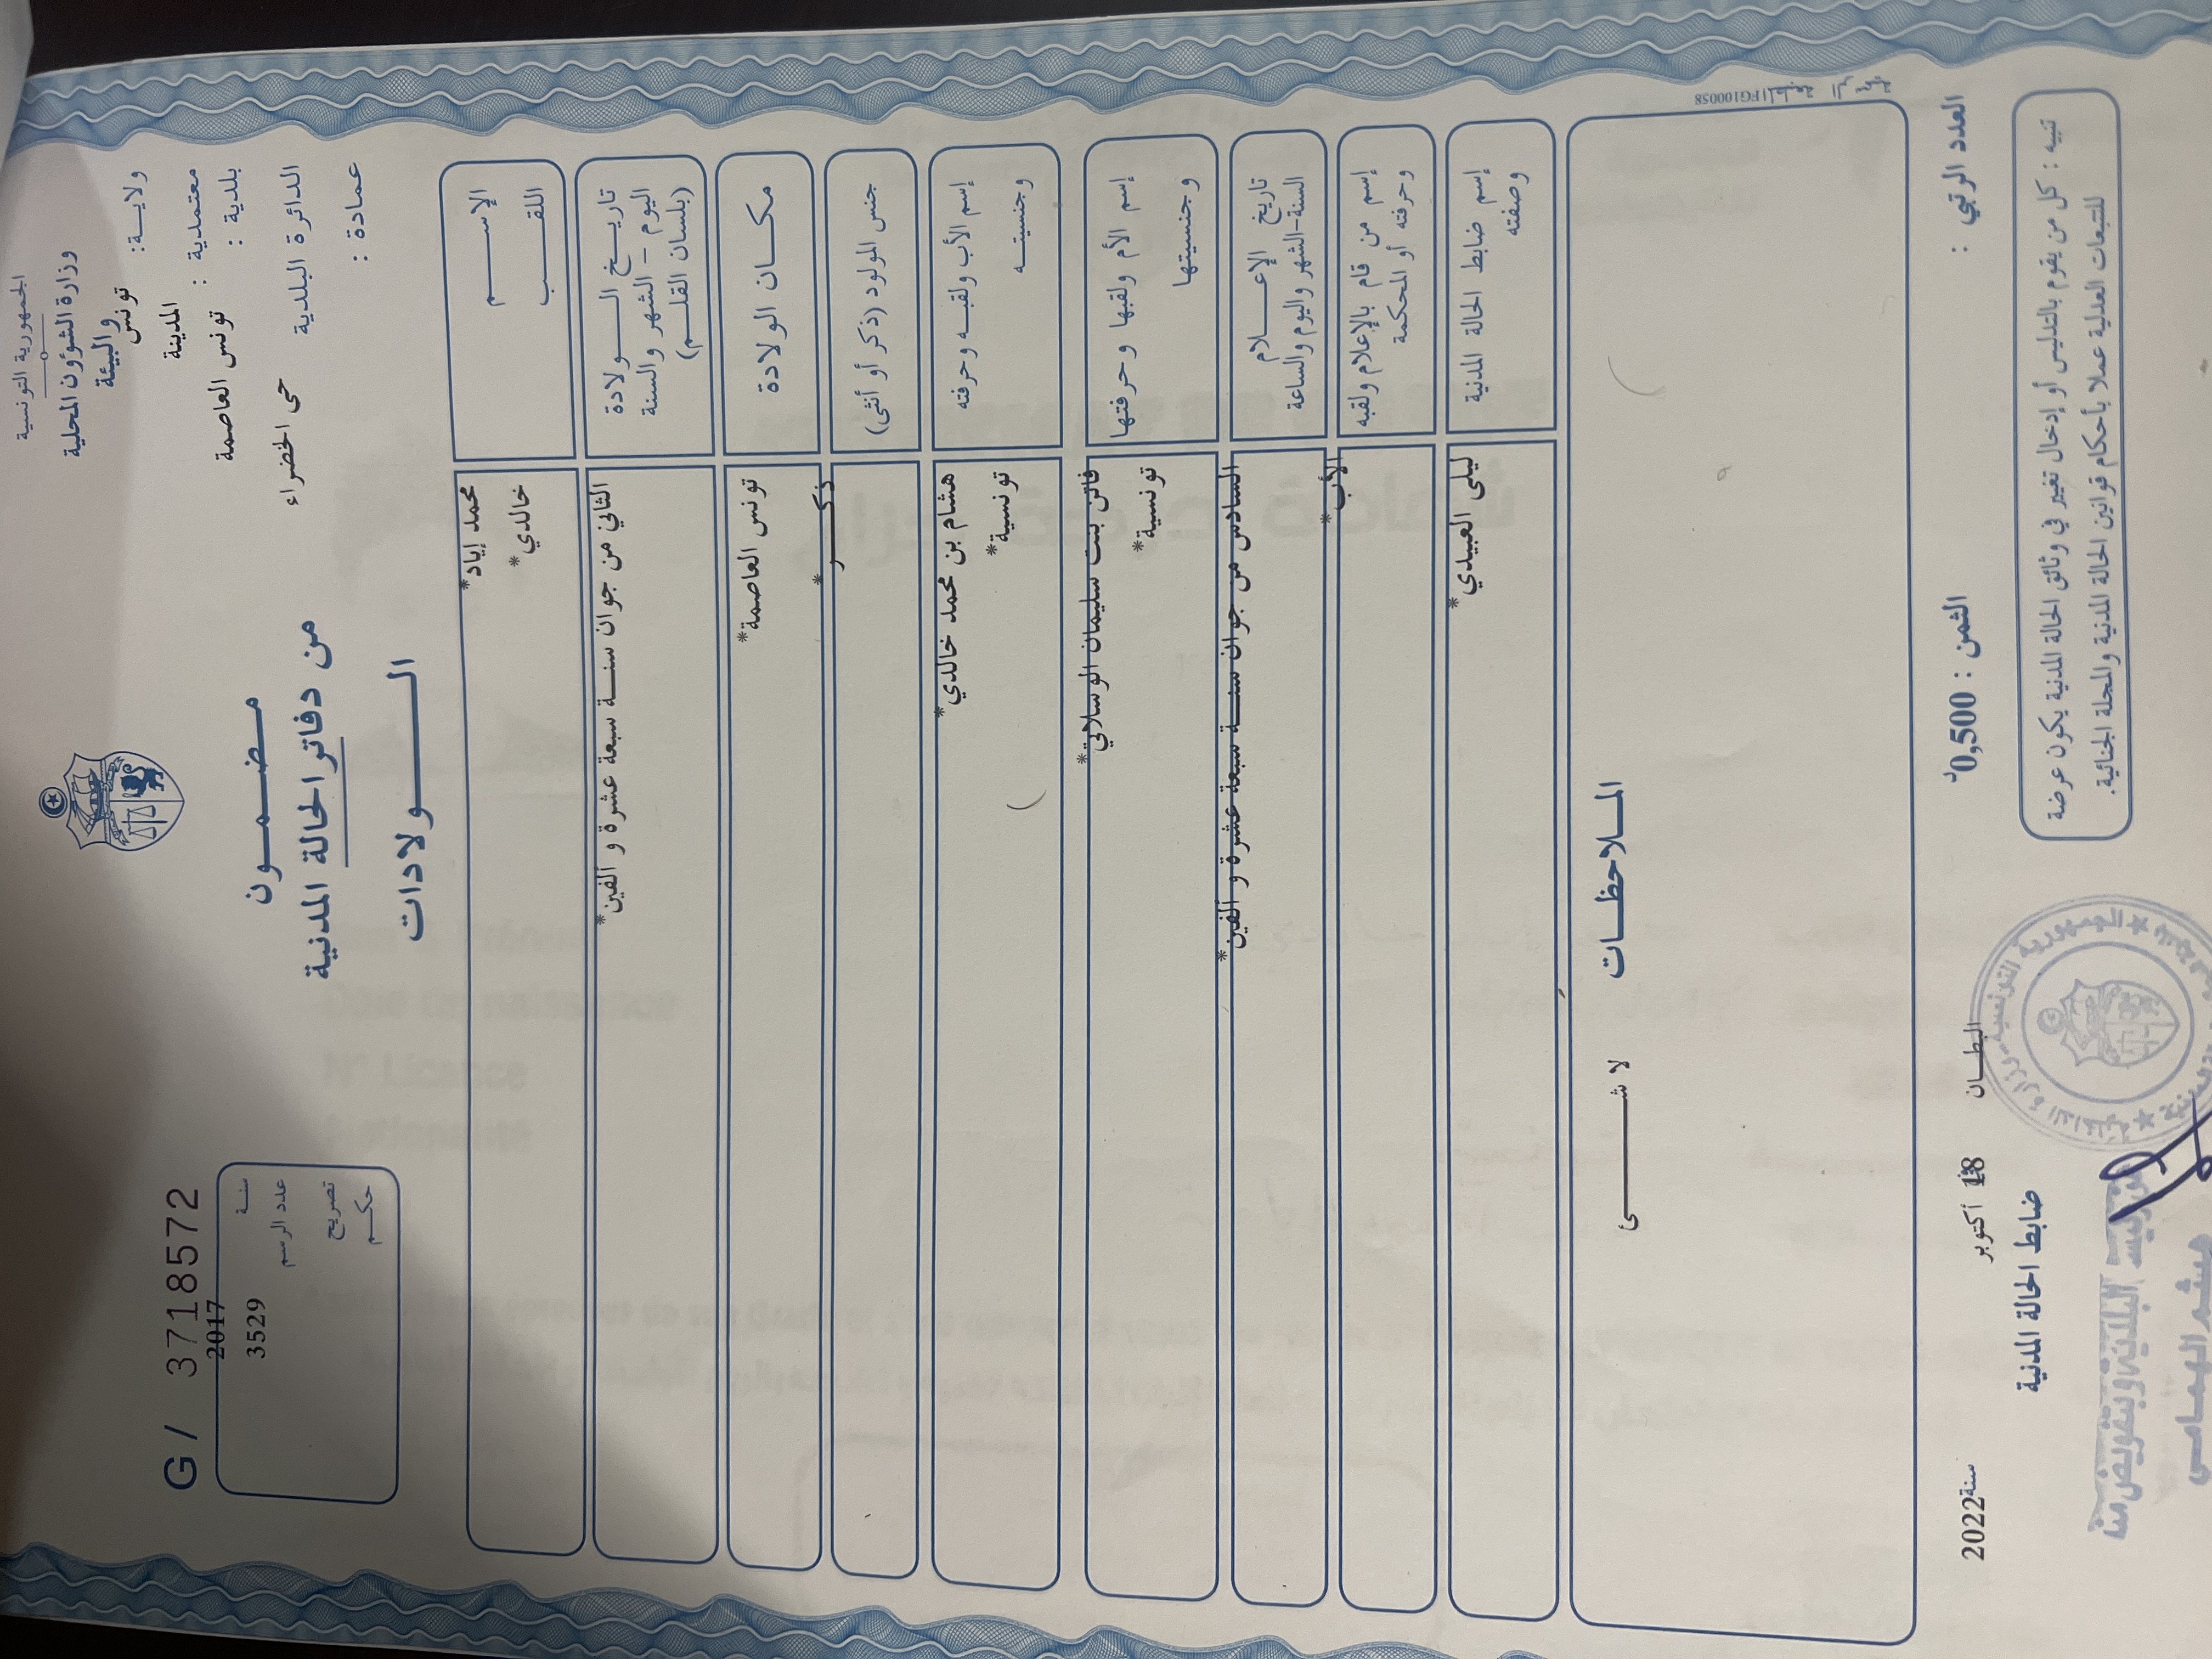 الجمهورية التونسية
وزارة الشؤون المحلية
والبيئة
ولاية: تونس
معتمدية : المدينة
بلدية : تونس العاصمة
الدائرة البلدية حى الخضراء
عمادة :
مضمون
من دفاتر الحالة المدنية
الولادات
G / 3718572
سنة 2017
عدد الرسم 3529
تصريح
حكم
الإسم محمد إياد*
اللقب خالدي*
تاريخ الولادة الثاني من جوان سنة سبعة عشرة و ألفين*
اليوم - الشهر والسنة
(بلسان القلم)
مكان الولادة تونس العاصمة*
جنس المولود (ذكر أو أنثى) ذكر*
إسم الأب ولقبه وحرفته هشام بن محمد خالدي*
وجنسيته تونسية*
إسم الأم ولقبها وحرفتها فاتن بنت سليمان الوسلاتي*
وجنسيتها تونسية*
تاريخ الإعلام السادس من جوان سنة سبعة عشرة و ألفين*
السنة-الشهر واليوم والساعة
إسم من قام بالإعلام ولقبه الأب*
وحرفته أو المحكمة
إسم ضابط الحالة المدنية ليلى العبيدي*
وصفته
الملاحظات
لا شئ
العدد الرتبي :
الثمن : 0,500د
البطان 18 أكتوبر سنة 2022
ضابط الحالة المدنية
تنبيه : كل من يقوم بالتدليس أو إدخال تغيير في وثائق الحالة المدنية يكون عرضة
للتبعات العدلية عملا بأحكام قوانين الحالة المدنية والمجلة الجنائية.
FG100058